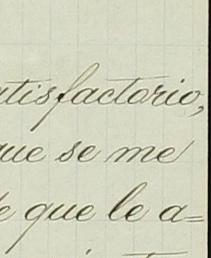 atisfactorio,
que se me
e que le a=